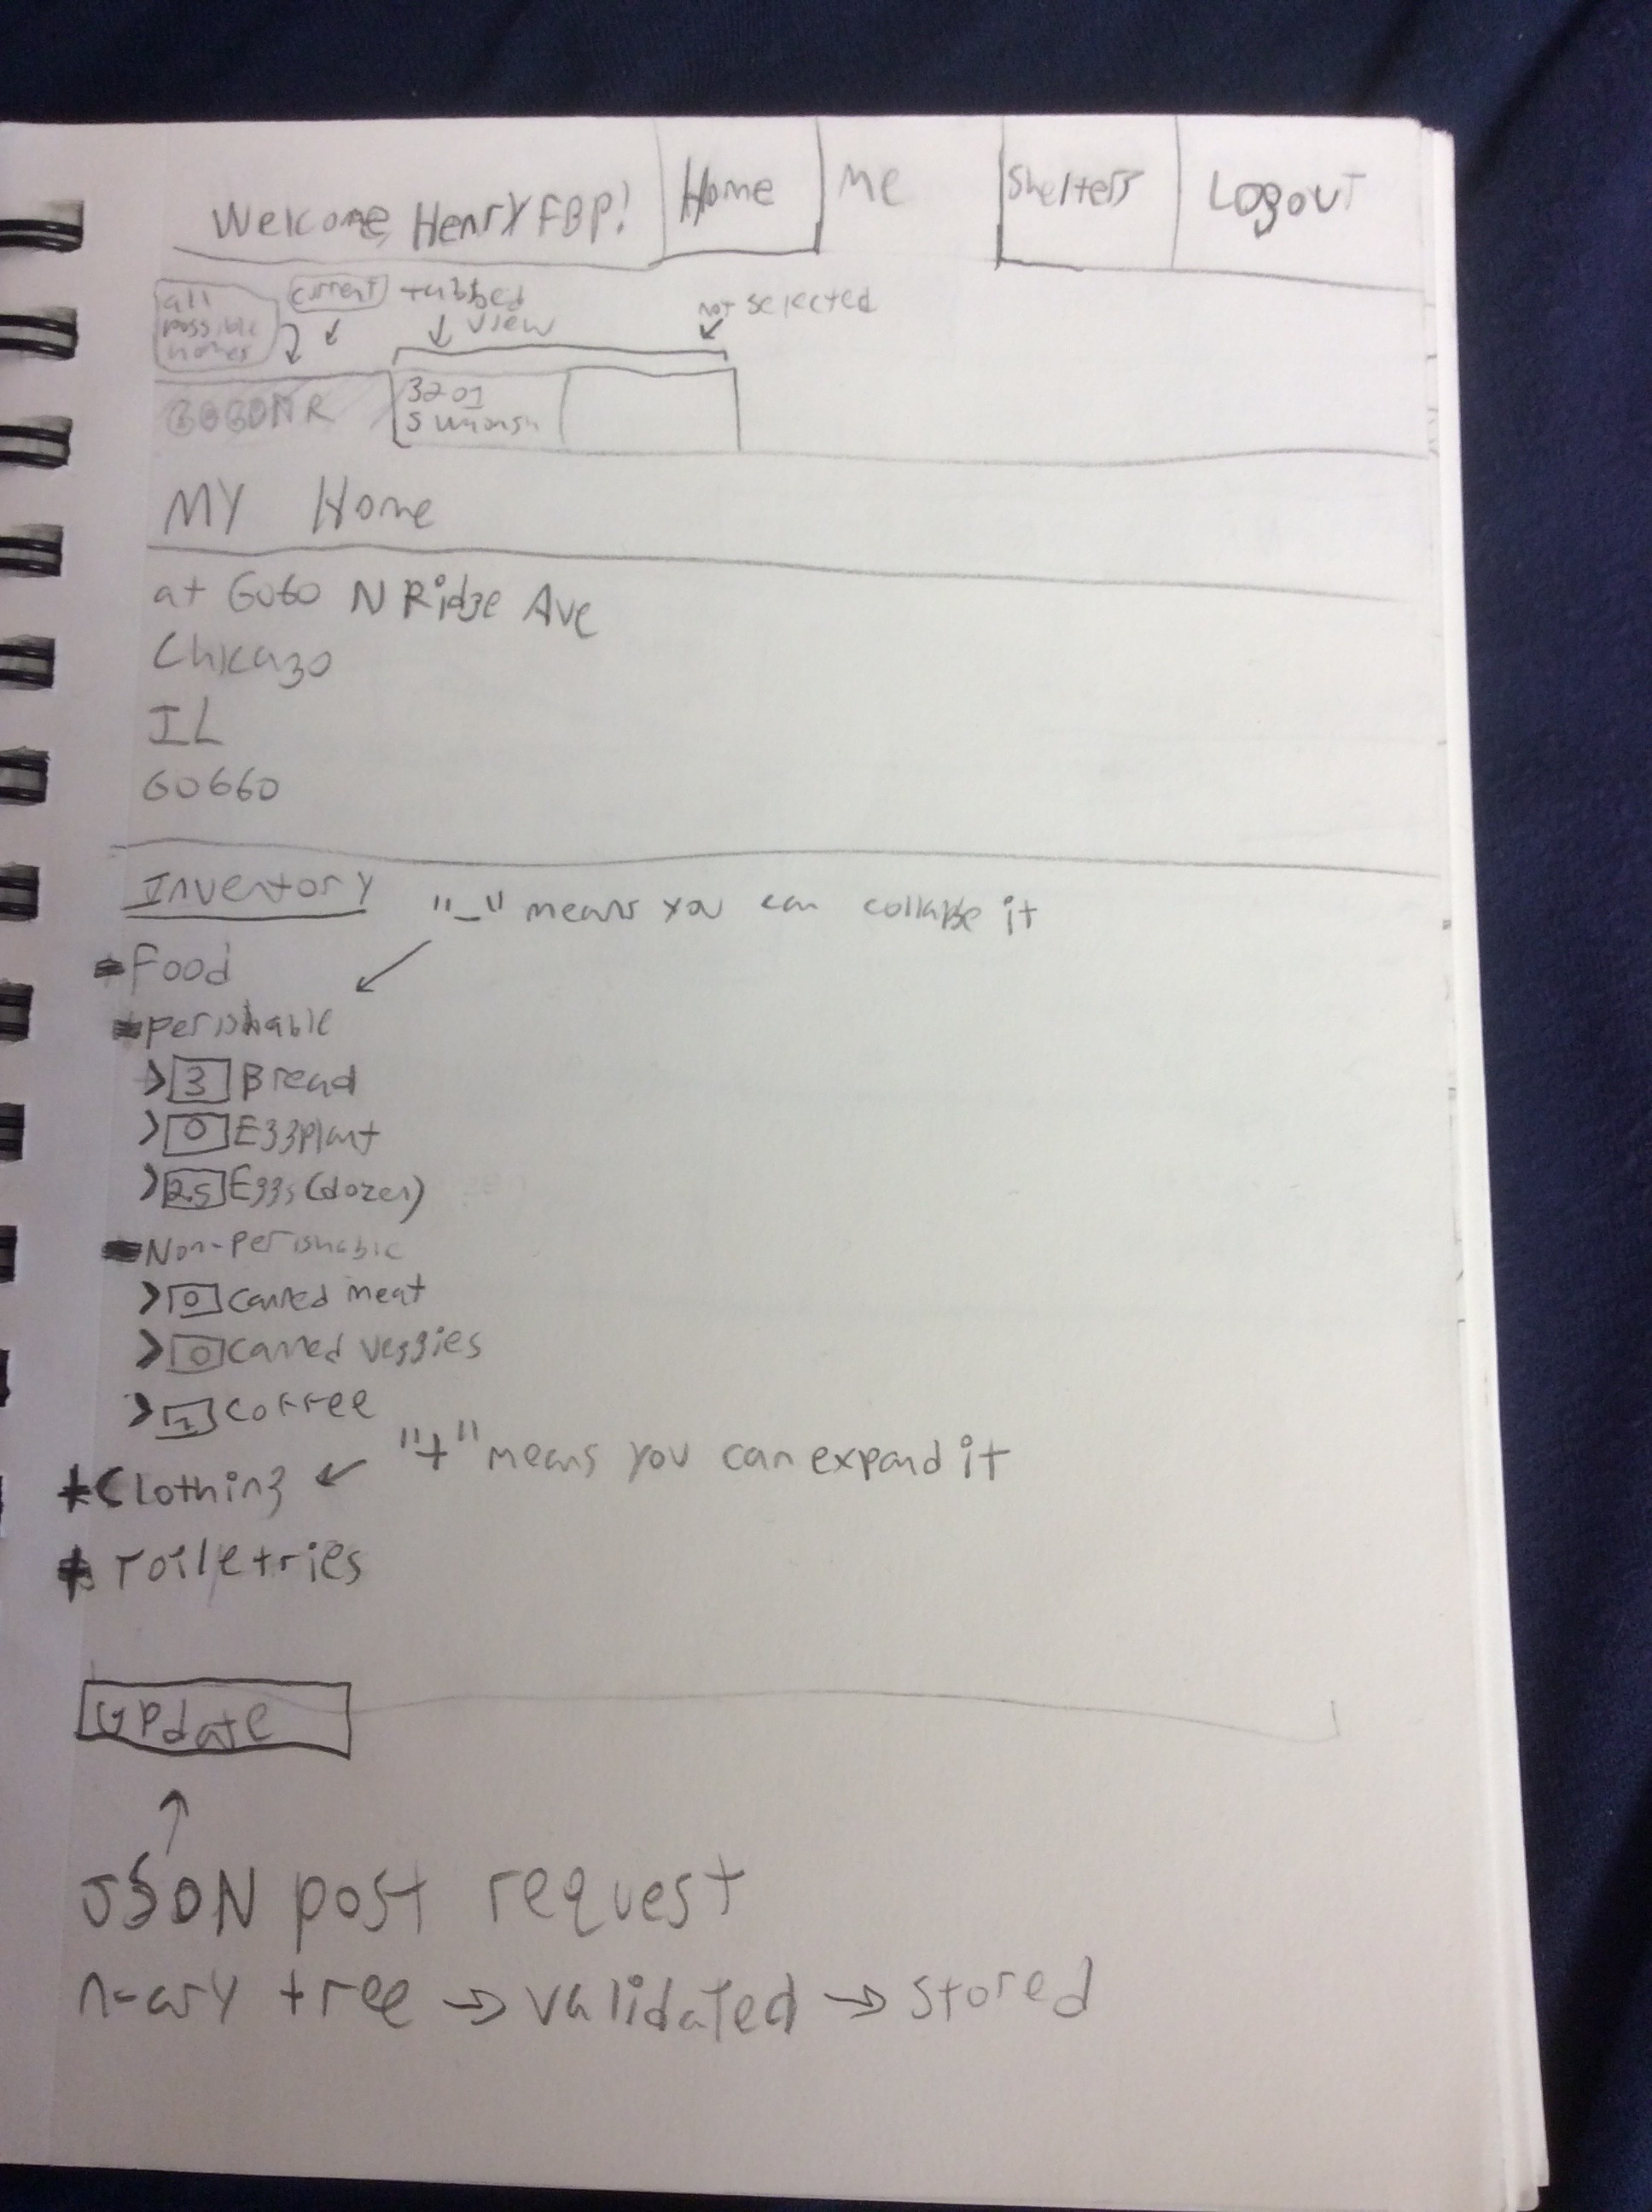 Welcome, HenryFBP! Home Me Shelters Logout
all possible homes
current
tabbed view
not selected
6060 N R
3201
S
MY Home
at 6060 N Ridge Ave
Chicago
IL
60660
Inventory
"-" means you can collapse it
- Food
- perishable
> 3 Bread
> 0 Eggplant
> 25 Eggs (dozen)
- Non-perishable
> 0 canned meat
> 0 canned veggies
> 1 coffee
"+" means you can expand it
+ Clothing
+ Toiletries
Update
JSON post request
n-ary tree → validated → stored